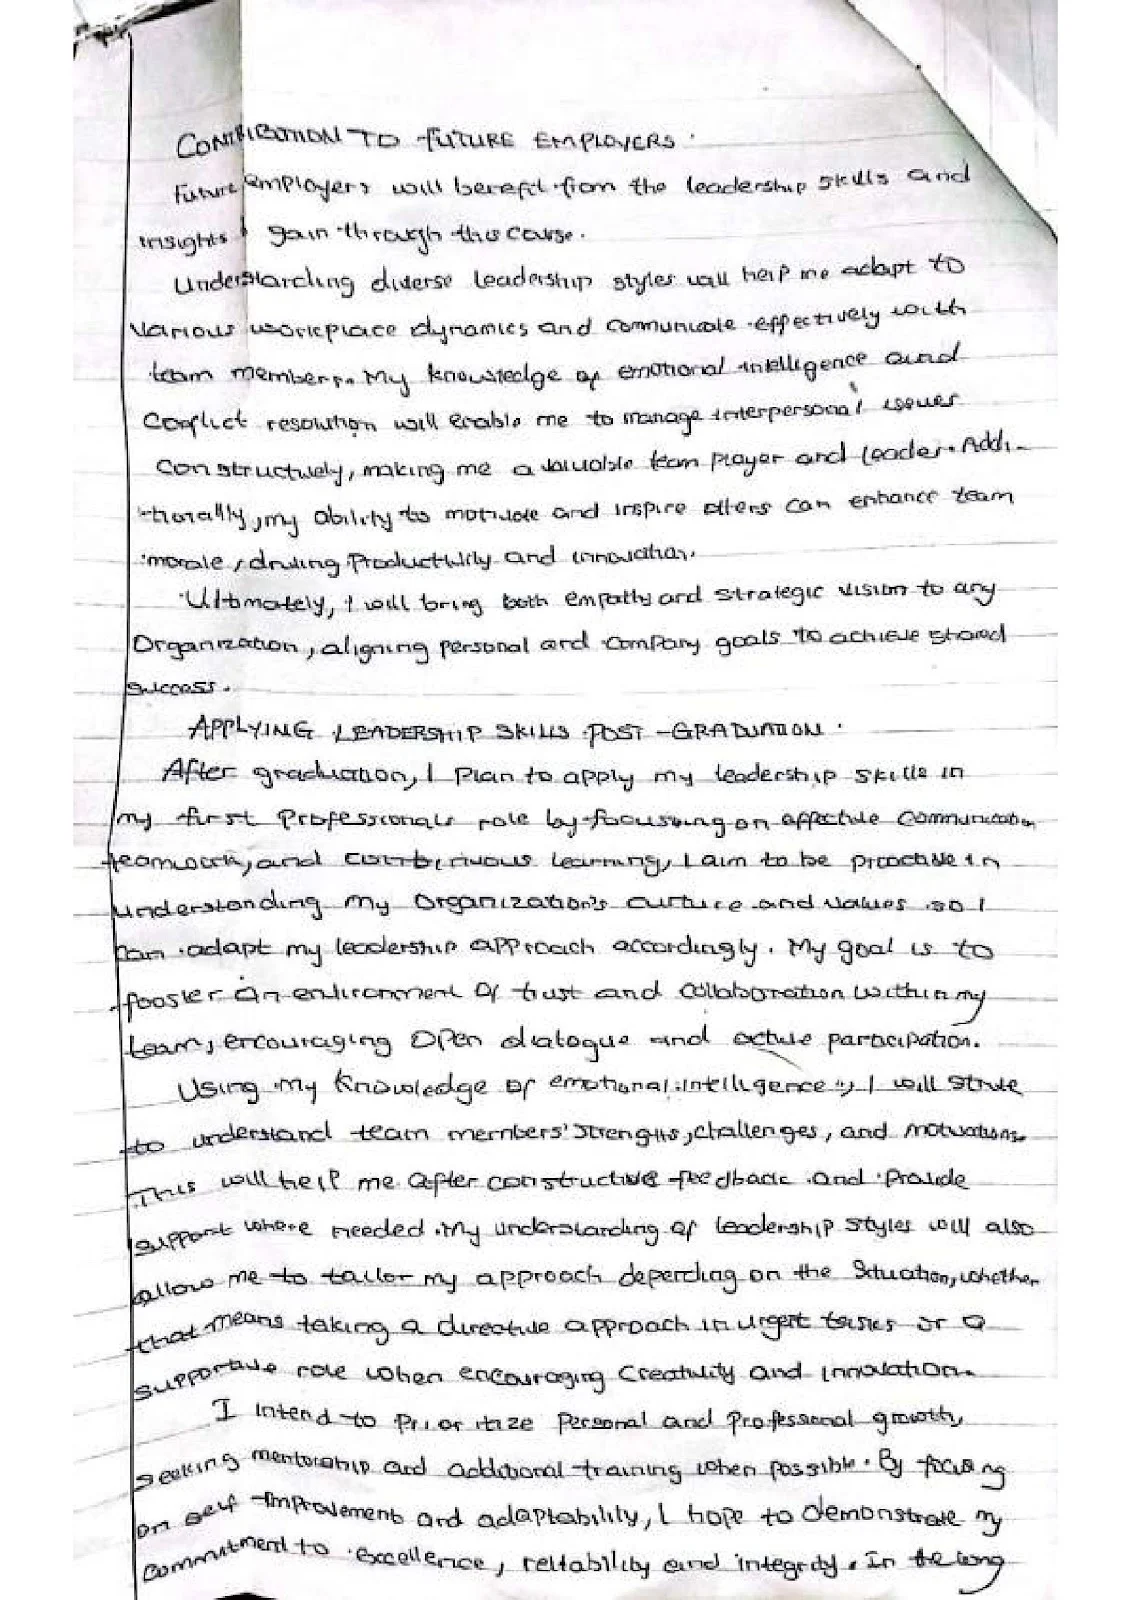 CONTRIBUTION TO FUTURE EMPLOYERS.
Future employers will benefit from the leadership skills and
insights I gain through this course.
Understanding diverse leadership styles will help me adapt to
various workplace dynamics and communicate effectively with
team members. My knowledge of emotional intelligence and
conflict resolution will enable me to manage interpersonal issues
constructively, making me a valuable team player and leader. Addi-
tionally, my ability to motivate and inspire others can enhance team
morale, driving productivity and innovation.
Ultimately, I will bring both empathy and strategic vision to any
Organization, aligning personal and company goals to achieve shared
success.
APPLYING LEADERSHIP SKILLS POST-GRADUATION.
After graduation, I plan to apply my leadership skills in
my first professionals role by focusing on effective communication
teamwork, and continuous learning, I aim to be proactive in
understanding my organization's culture and values so I
can adapt my leadership approach accordingly. My goal is to
fooster an environment of trust and collaboration within my
team, encouraging open dialogue and active participation.
Using my knowledge of emotional intelligence, I will strive
to understand team members' strengths, challenges, and motivations.
This will help me after constructive feedback and provide
support where needed. My understanding of leadership styles will also
allow me to tailor my approach depending on the situation, whether
that means taking a directive approach in urgent tasks or a
supportive role when encouraging creativity and innovation.
I intend to prioritize personal and professional growth,
seeking mentorship and additional training when possible. By focusing
on self-improvement and adaptability, I hope to demonstrate my
commitment to excellence, reliability and integrity. In the long